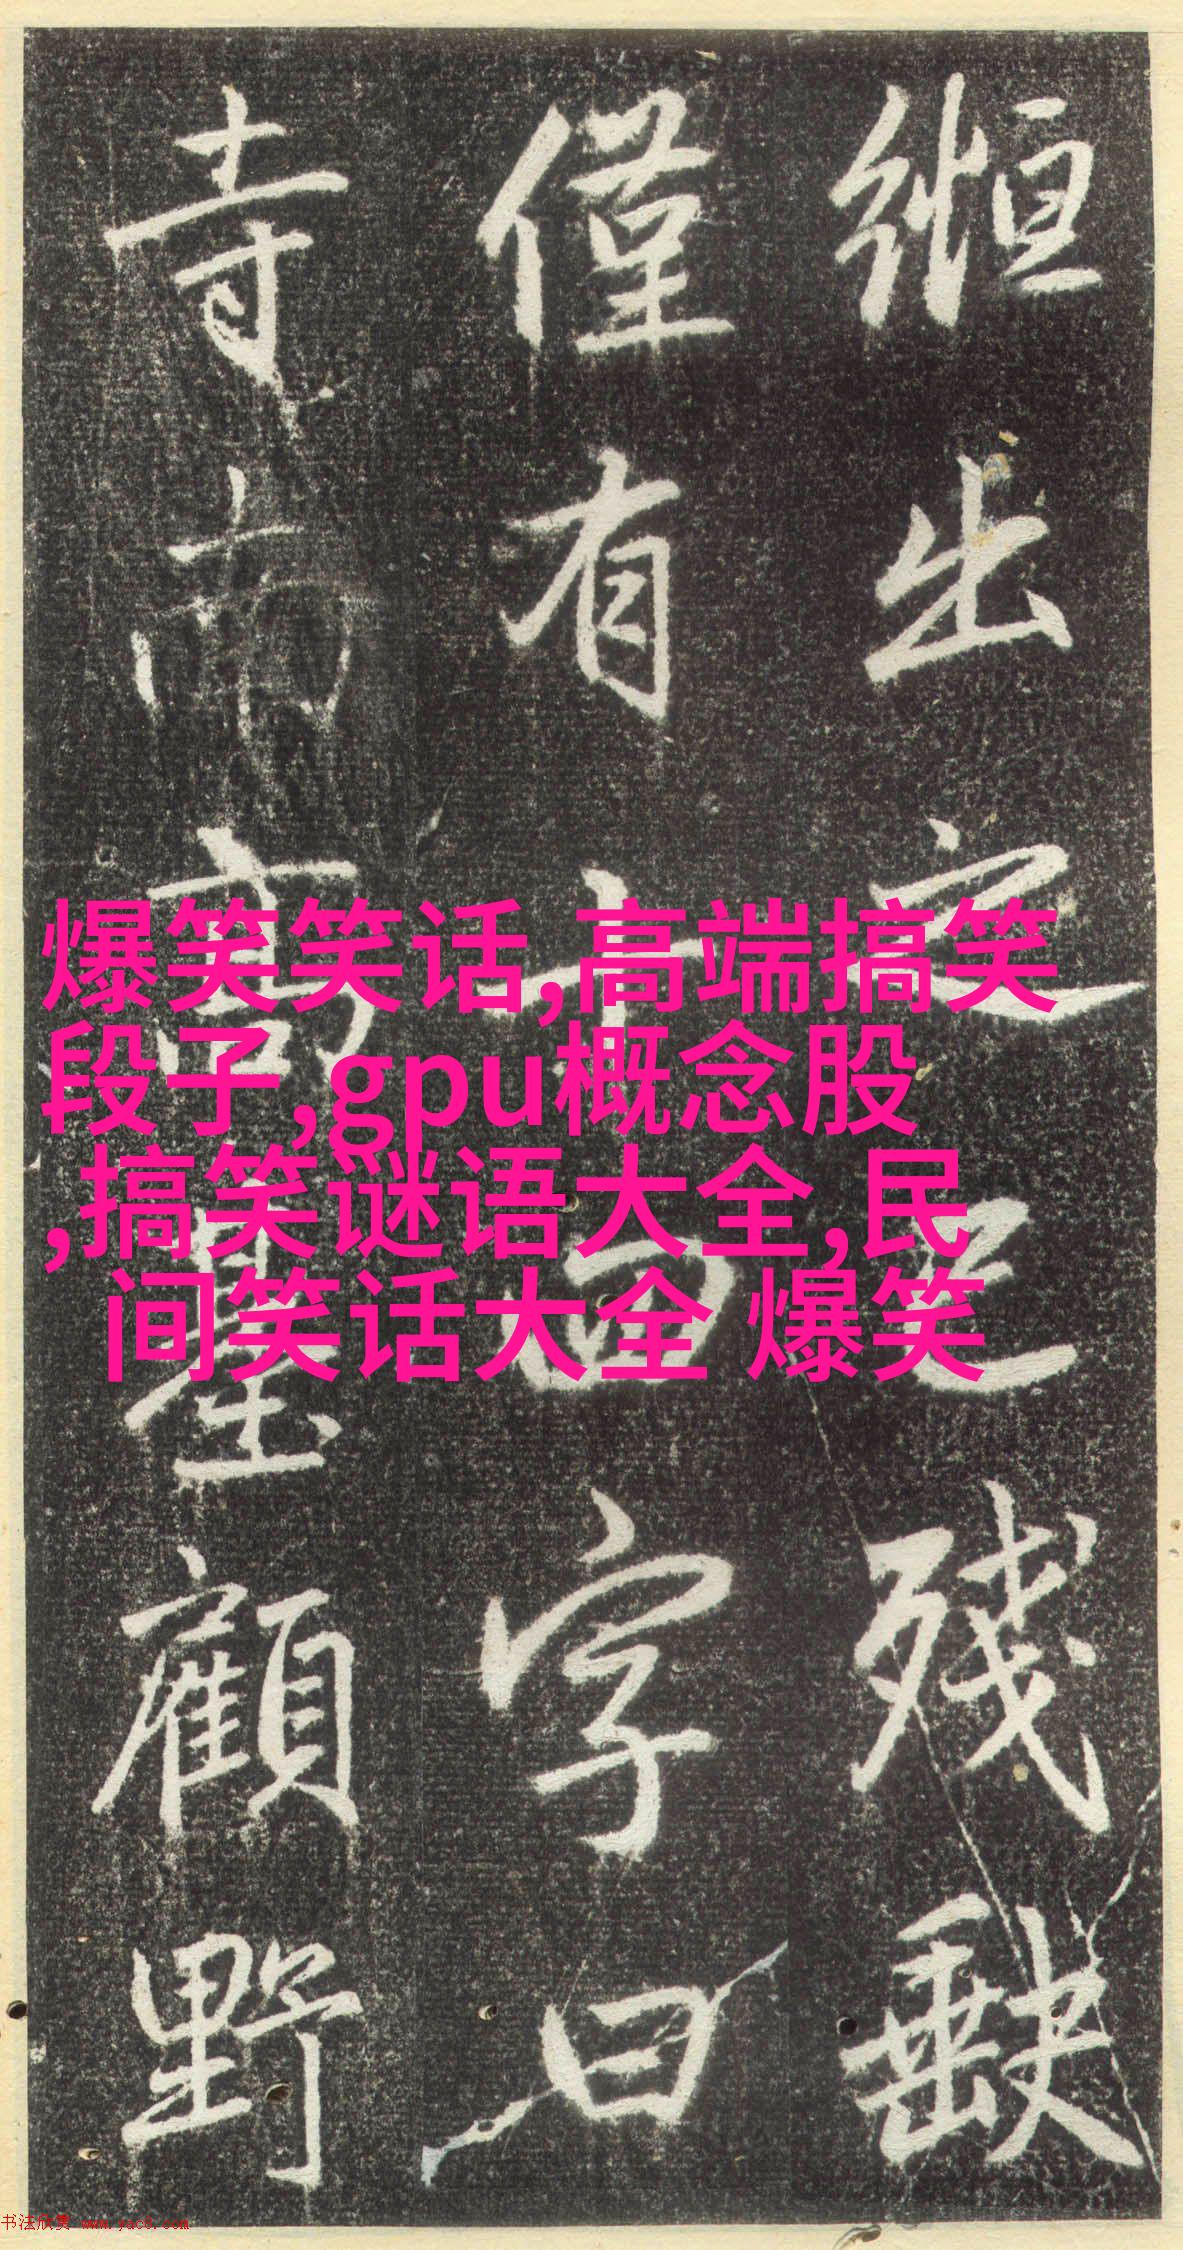 出
残缺
僅有十四字曰
寺
高
顧野
爆笑笑话,高端搞笑
段子,gpu概念股
,搞笑谜语大全,民
间笑话大全 爆笑
书法欣赏 www.yac8.com